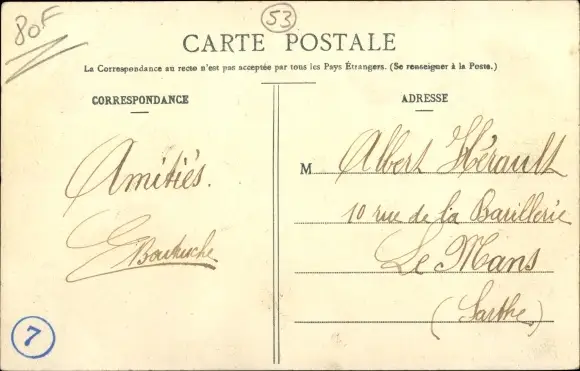 80F
53
CARTE POSTALE
La Correspondance au recto n'est pas acceptée par tous les Pays Étrangers. (Se renseigner à la Poste.)
CORRESPONDANCE
Amitiés.
ADRESSE
M Albert Hérault
10 rue de la Barillerie
Le Mans
(Sarthe)
7